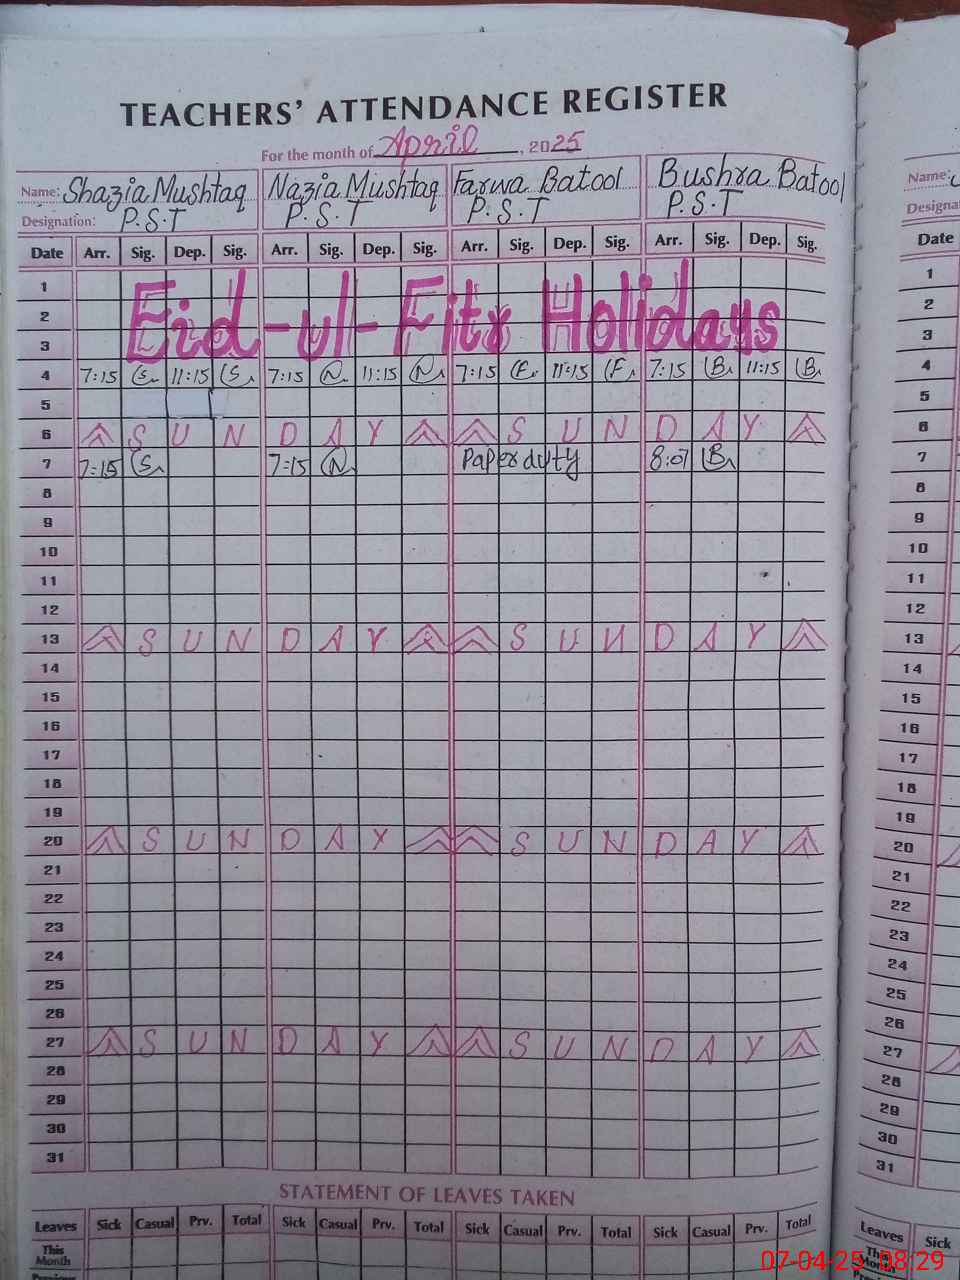 TEACHERS' ATTENDANCE REGISTER
For the month of April, 2025
Name: Shazia Mushtaq Nazia Mushtaq Farwa Batool Bushra Batool Name:
Designation: P.S.T P.S.T P.S.T P.S.T Designa
Date Arr. Sig. Dep. Sig. Arr. Sig. Dep. Sig. Arr. Sig. Dep. Sig. Arr. Sig. Dep. Sig. Date
1 1
2 Eid-ul-Fitr Holidays 2
3 3
4 7:15 S 11:15 S 7:15 N 11:15 N 7:15 F 11:15 F 7:15 B 11:15 B 4
5 5
6 S U N D A Y S U N D A Y 6
7 7:15 S 7:15 N Paper duty 8:07 B 7
8 8
9 9
10 10
11 11
12 12
13 S U N D A Y S U N D A Y 13
14 14
15 15
16 16
17 17
18 18
19 19
20 S U N D A Y S U N D A Y 20
21 21
22 22
23 23
24 24
25 25
26 26
27 S U N D A Y S U N D A Y 27
28 28
29 29
30 30
31 31
STATEMENT OF LEAVES TAKEN
Leaves Sick Casual Prv. Total Sick Casual Prv. Total Sick Casual Prv. Total Sick Casual Prv. Total Leaves Sick
This Month This Month
07-04-25 08:29